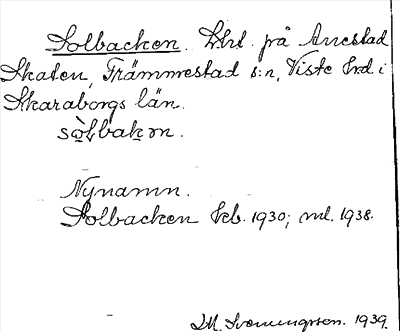 Solbacken. Lht. på Anestad
Skaten, Främmestad s:n, Viste hrd. i
Skaraborgs län.
sòlbakən.
Nynamn.
Solbacken kb. 1930; ml. 1938.
1939.